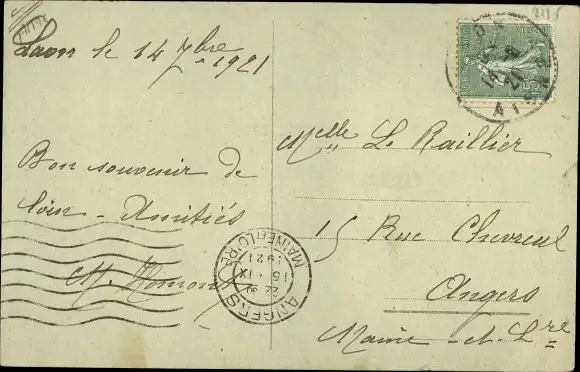 Laon le 14 7bre 1921
Bon souvenir de
loin - Amitiés
Melle Le Raillier
15 Rue Chevreul
Angers
Maine-et-Lre
15
AISNE
ANGERS
MAINE-ET-LOIRE
22 30
15 - IX
1921